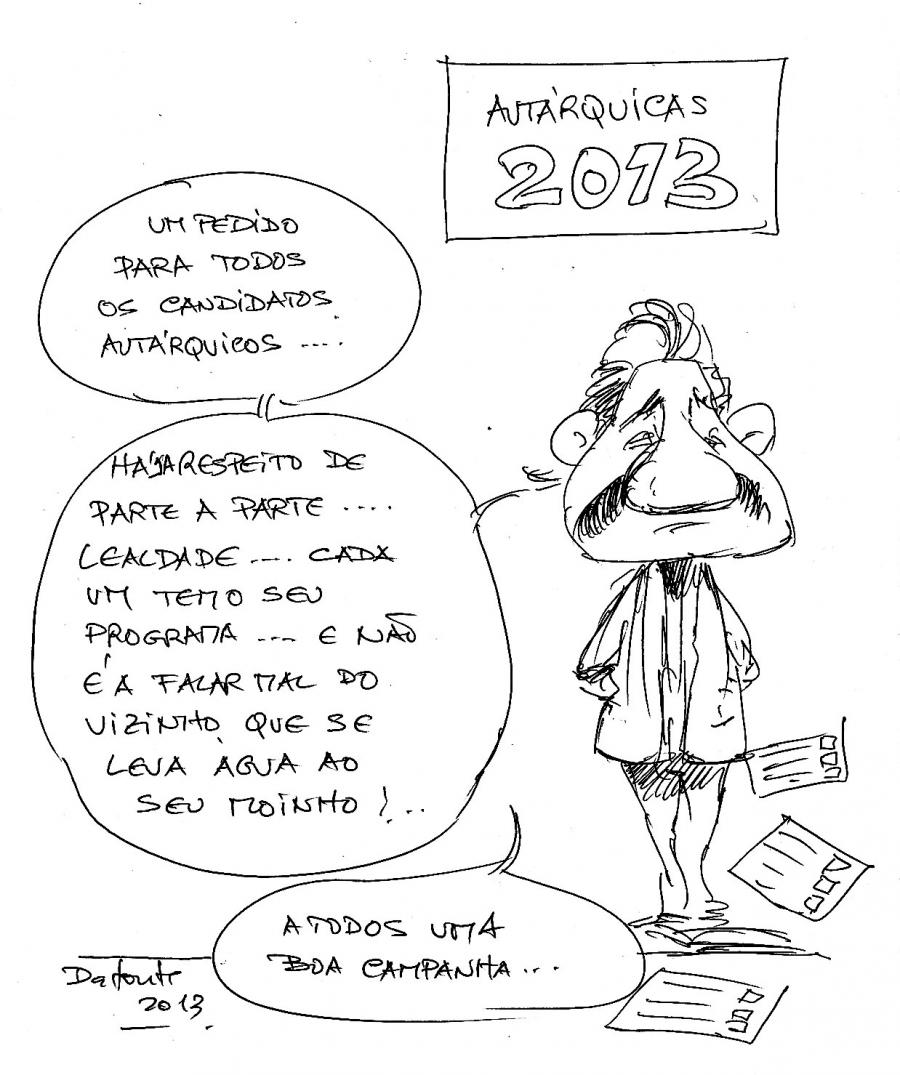 AUTÁRQUICAS
2013
UM PEDIDO
PARA TODOS
OS CANDIDATOS
AUTÁRQUICOS ....
HAJA RESPEITO DE
PARTE A PARTE ....
LEALDADE .... CADA
UM TEM O SEU
PROGRAMA .... E NÃO
É A FALAR MAL DO
VIZINHO, QUE SE
LEVA ÁGUA AO
SEU MOINHO !...
A TODOS UMA
BOA CAMPANHA...
Dafonte
2013